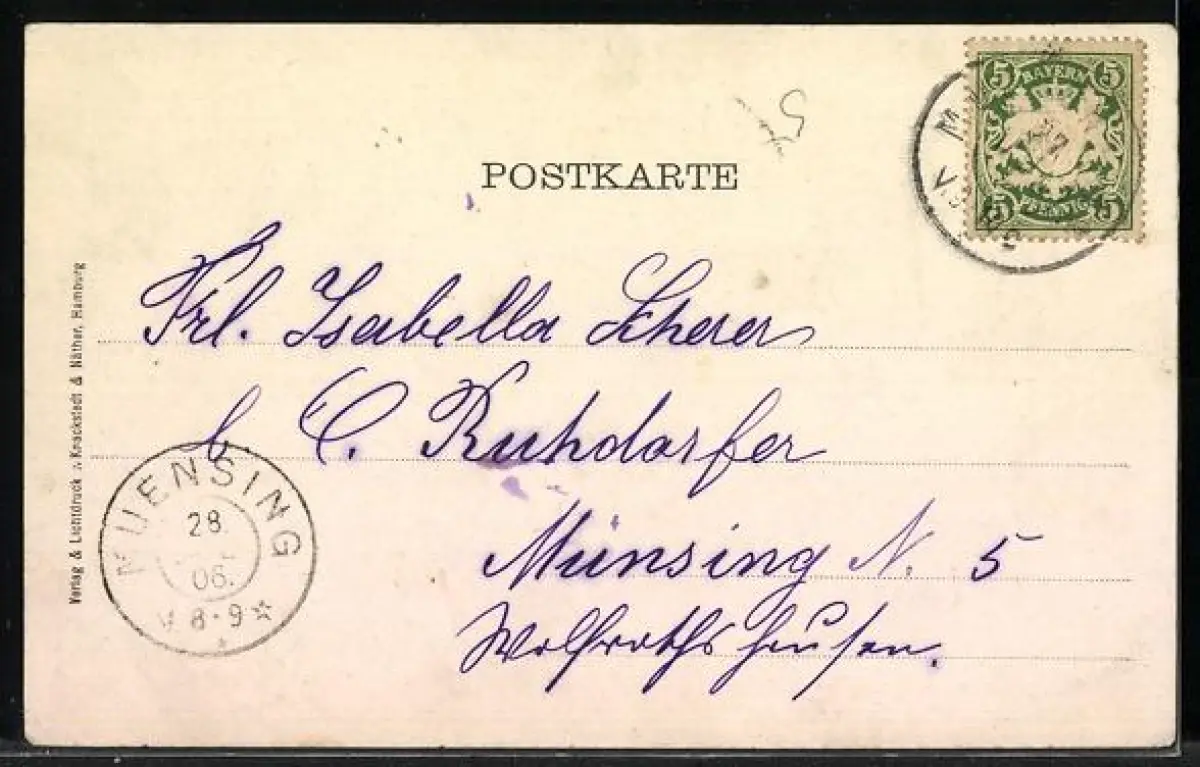 5
POSTKARTE
5 BAYERN 5
5 PFENNIG 5
27
Frl. Isabella Scherer
b. C. Ruhdorfer
Münsing N. 5
Wolfrathshausen.
MUENSING
28.
06.
V 8-9
Verlag & Lichtdruck v. Knackstedt & Näther, Hamburg